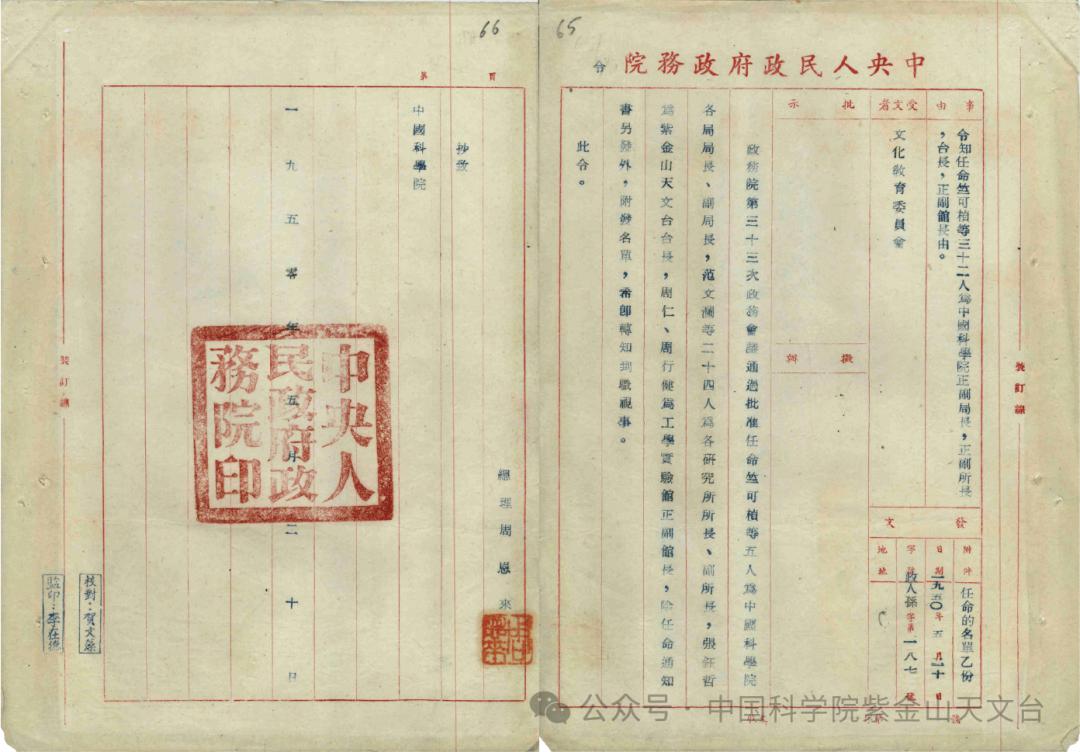 65
中央人民政府政務院
令
事由
令知任命竺可楨等三十二人為中國科學院正副局長，正副所長
，台長，正副館長由。
受文者
文化教育委員會
批示
擬辦
發文
附件
任命的名單乙份
日期
一九五〇年五月二十日
字號
政人孫字第一八七號
地址
政務院第三十三次政務會議通過批准任命竺可楨等五人為中國科學院
各局局長、副局長，范文瀾等二十四人為各研究所所長、副所長，張鈺哲
為紫金山天文台台長，周仁、周行健為工學實驗館正副館長，除任命通知
書另發外，附發名單，希即轉知到職視事。
此令。
裝訂線
66
第
頁
總理周恩來
周恩來印
抄致
中國科學院
一九五零年五月二十日
中央人民政府政務院印
校對：賀文
監印：李在德
裝訂線
公众号·中国科学院紫金山天文台